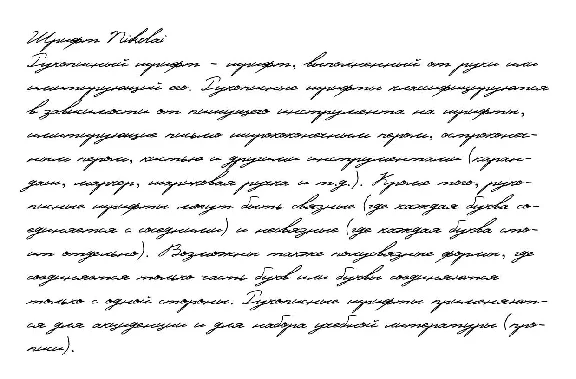 Шрифт Nikolai
Рукописный шрифт – шрифт, выполненный от руки или
имитирующий его. Рукописные шрифты классифицируются
в зависимости от пишущего инструмента на шрифты,
имитирующие письмо ширококонечным пером, остроконеч-
ным пером, кистью и другими инструментами (каран-
даш, маркер, шариковая ручка и т.д.). Кроме того, руко-
писные шрифты могут быть связные (где каждая буква со-
единяется с соседними) и несвязные (где каждая буква сто-
ит отдельно). Возможны также полусвязные формы, где
соединяется только часть букв или буквы соединяются
только с одной стороны. Рукописные шрифты применяют-
ся для акциденции и для набора учебной литературы (про-
писи).